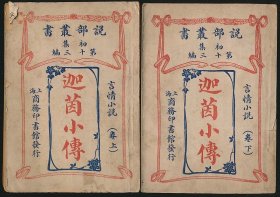 説部叢書
初集
第十三編
言情小説
（卷上）
迦茵小傳
上海商務印書館發行
説部叢書
初集
第十三編
言情小説
（卷下）
迦茵小傳
上海商務印書館發行